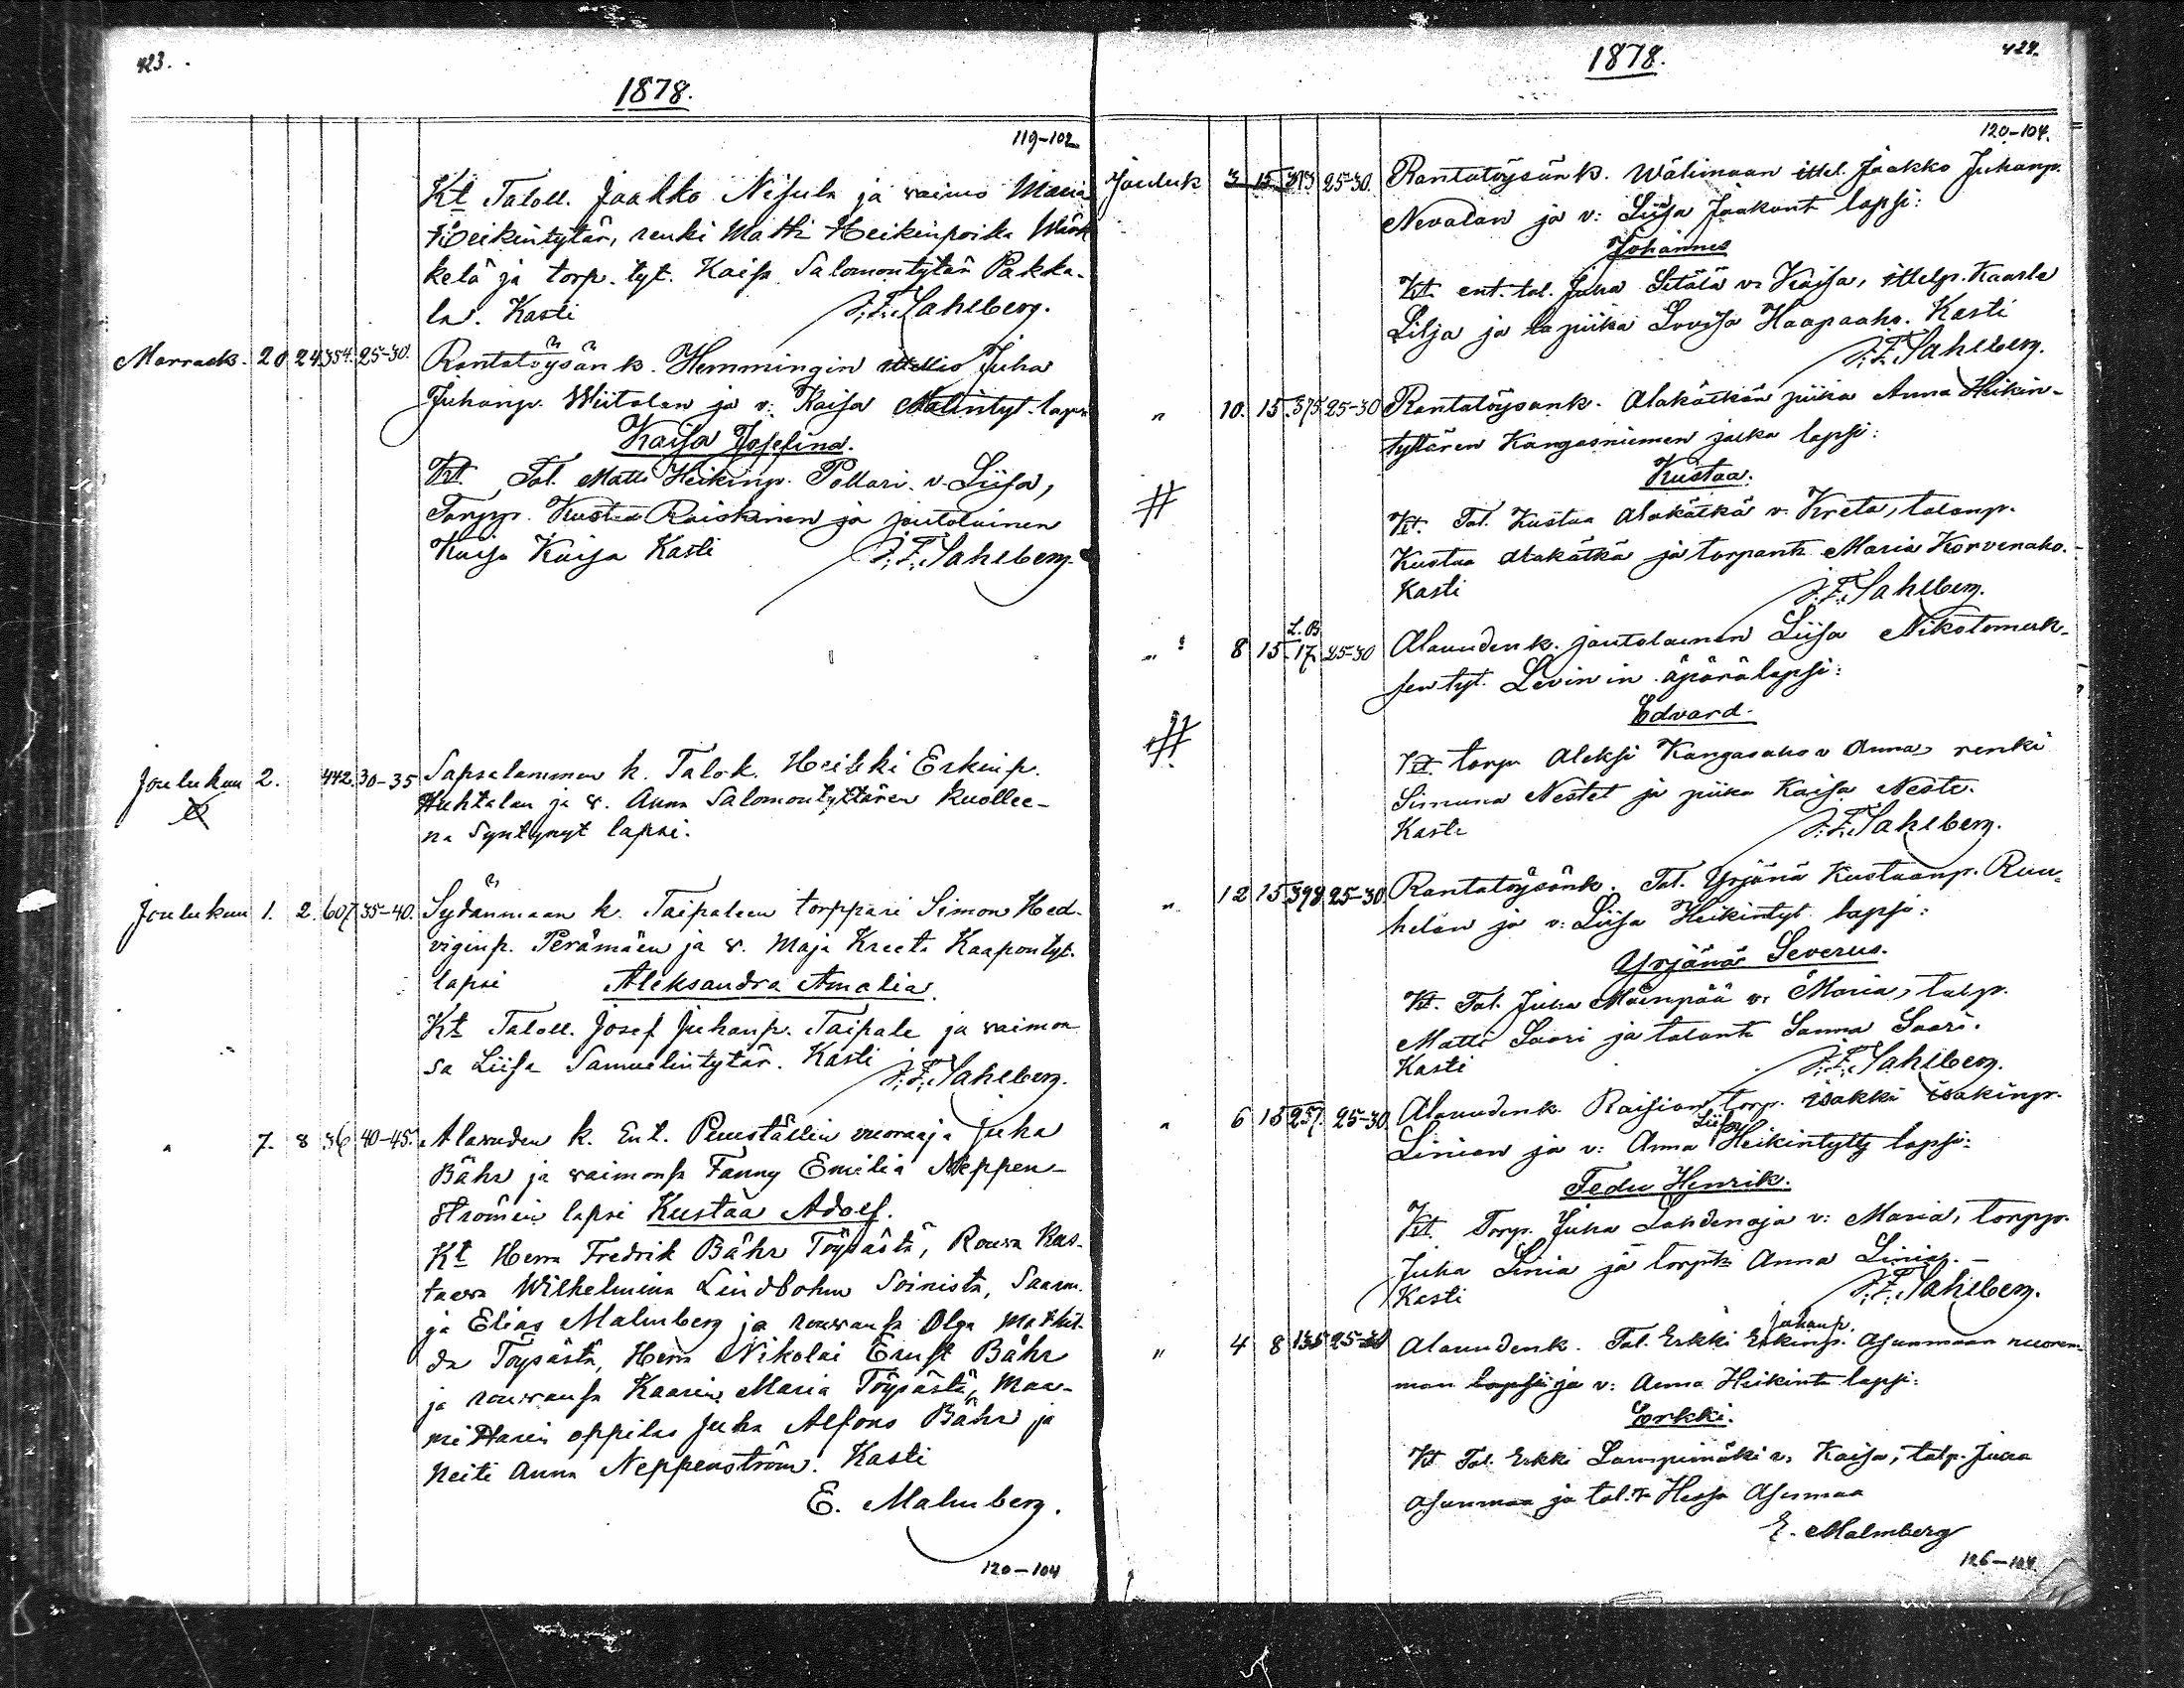 423.
1878.
119-102
Kt Taloll. Jaakko Nisula ja vaimo Maria
Heikintytär, renki Matti Heikinpoika Märk
kelä ja torp. tyt. Kaisa Salomontytär Pakka-
la. Kasti J. F. Sahlberg.
Marrask. 20 24 354. 25-30. Rantatöysän k. Hemmingin ittellis Juha
Juhanp. Wiitalan ja v: Kaisa Matintyt. laps
Kaisa Josefina.
Kt. Tal. Matti Heikinp. Pollari v. Liisa,
Torpp. Kustaa Raiskinen ja joutolainen
Kaisa Kaisa Kasti J. F. Sahlberg.
Joulukuu 2. 442. 30-35 Sapsalammen k. Talok. Heikki Erkinp.
Huhtalan ja v. Anna Salomontyttären kuollee-
na syntynyt lapsi.
Joulukuu 1. 2. 607 35-40. Sydänmaan k. Taipaleen torppari Simon Hed-
viginp. Perämäen ja v. Maja Kreeta Kaapontyt.
lapsi Aleksandra Amalia.
Kt Taloll. Josef Juhanp. Taipale ja vaimon
sa Liisa Samuelintytär. Kasti J. F. Sahlberg.
" 7. 8 36 40-45. Alavuden k. Ent. Puuställin vuoraaja Juha
Bähr ja vaimonsa Fanny Emilia Neppen-
strömin lapsi Kustaa Adolf.
Kt Herra Fredrik Bähr Töysästä, Rouva Kus-
taava Wilhelmina Lindbohm Soinista, Saarna
ja Elias Malmberg ja rouvansa Olga Mathil-
da Töysästä, Herra Nikolai Ernst Bähr
ja rouvansa Kaarin Maria Töysästä, Maa-
mittarin oppilas Juha Alfons Bähr ja
Neiti Anna Neppenström. Kasti
E. Malmberg.
120-104
1878. 424.
120-104.
Jouluk 3 15 373 25-30. Rantatöysän k. Wälimaan ittel. Jaakko Juhanp.
Nevalan ja v: Liisa Jaakont lapsi:
Johannes
Kt. ent. tal. Juha Sitälä v: Kaisa, ittelp. Kaarle
Lilja ja piika Lovisa Haapaaho. Kasti
J. F. Sahlberg.
" 10. 15 375 25-30 Rantatöysänk. Alakätkän piika Anna Heikin-
tyttären Kangasniemen lapsi:
Kustaa.
Kt. Tal. Kustaa Alakätkä v: Kreta, talonp.
Kustaa Alakätkä ja torpant Maria Korvenaho.
Kasti J. F. Sahlberg.
L. B.
" 8 15 17 25-30 Alavudenk. joutolainen Liisa Nikotemuk-
sen tyt. Levin in äpärälapsi:
Edvard.
Kt. torp. Aleksi Kangasaho v Anna, renki
Simuna Nestet ja piika Kaisa Neste.
Kasti J. F. Sahlberg.
" 12 15 398 25-30 Rantatöysänk. Tal. Yrjänä Kustaanp. Ruu-
helan ja v: Liisa Heikintyt lapsi:
Yrjänä Severus.
Kt. Tal. Juha Mäenpää v: Maria, talp.
Matti Saari ja talont Sanna Saari.
Kasti J. F. Sahlberg.
" 6 15 257. 25-30 Alavudenk. Raision torp. Isakki Isakinp.
Liisa
Linian ja v: Anna Heikintytt lapsi:
Fedu Henrik.
Kt. Torp. Juha Lahdenoja v: Maria, torpp.
Juha Linia ja torpt Anna Linia.
Kasti J. F. Sahlberg.
Juhanp.
" 4 8 135 25-30 Alavudenk. Tal. Erkki Erkinp. Asunmaan nuorem-
man lapsi ja v: Anna Heikint lapsi:
Erkki.
Kt Tal. Erkki Lampimäki v: Kaisa, talp. Juha
Asunmaa ja tal. t. Hessa Asunmaa
E. Malmberg
126-104